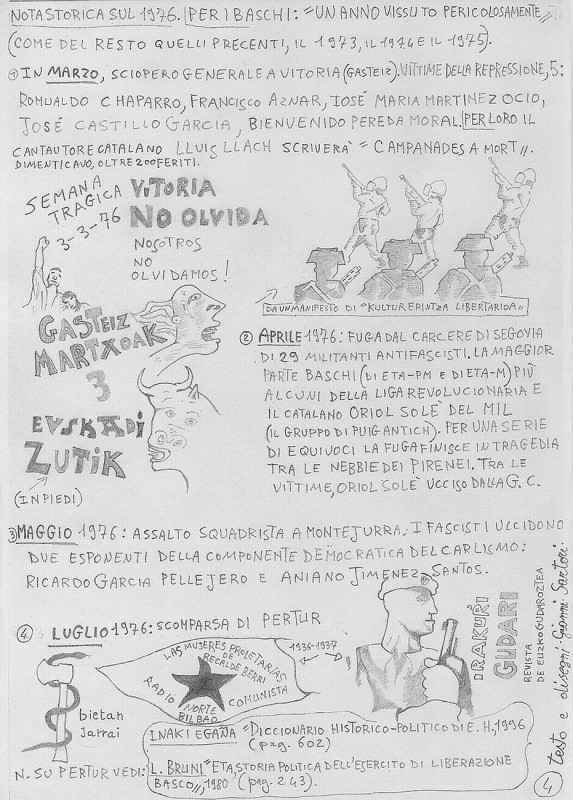 NOTA STORICA SUL 1976. PER I BASCHI: "UN ANNO VISSUTO PERICOLOSAMENTE"
(COME DEL RESTO QUELLI PRECENTI, IL 1973, IL 1974 E IL 1975).
1) IN MARZO, SCIOPERO GENERALE A VITORIA (GASTEIZ). VITTIME DELLA REPRESSIONE, 5:
ROMUALDO CHAPARRO, FRANCISCO AZNAR, JOSÉ MARIA MARTINEZ OCIO,
JOSÉ CASTILLO GARCIA, BIENVENIDO PEREDA MORAL. PER LORO IL
CANTAUTORE CATALANO LLUIS LLACH SCRIVERA' "CAMPANADES A MORT".
DIMENTICAVO, OLTRE 200 FERITI.
SEMANA TRAGICA
3-3-76
VITORIA
NO OLVIDA
NOSOTROS
NO
OLVIDAMOS!
GASTEIZ
MARTXOAK
3
EUSKADI
ZUTIK
(IN PIEDI)
DA UN MANIFESTO DI "KULTUR ERAINTZA LIBERTARIOA"
2) APRILE 1976: FUGA DAL CARCERE DI SEGOVIA
DI 29 MILITANTI ANTIFASCISTI. LA MAGGIOR
PARTE BASCHI (DI ETA-PM E DI ETA-M) PIÙ
ALCUNI DELLA LIGA REVOLUCIONARIA E
IL CATALANO ORIOL SOLÈ DEL MIL
(IL GRUPPO DI PUIG ANTICH). PER UNA SERIE
DI EQUIVOCI LA FUGA FINISCE IN TRAGEDIA
TRA LE NEBBIE DEI PIRENEI. TRA LE
VITTIME, ORIOL SOLÈ UCCISO DALLA G. C.
3) MAGGIO 1976: ASSALTO SQUADRISTA A MONTEJURRA. I FASCISTI UCCIDONO
DUE ESPONENTI DELLA COMPONENTE DEMOCRATICA DEL CARLISMO:
RICARDO GARCIA PELLEJERO E ANIANO JIMENEZ SANTOS.
4) LUGLIO 1976: SCOMPARSA DI PERTUR
LAS MUJERES PROLETARIAS
DE
RECALDE BERRI
RADIO
NORTE
BILBAO
COMUNISTA
1936-1937
IRAKURRI
GUDARI
REVISTA
DE EUZKO GUDAROZTEA
bietan
jarrai
N. SU PERTUR VEDI:
INAKI EGAÑA "DICCIONARIO HISTORICO-POLITICO DI E. H, 1996
(pag. 602)
L. BRUNI "ETA, STORIA POLITICA DELL'ESERCITO DI LIBERAZIONE
BASCO", 1980 (pag. 243).
testo e disegni: Gianni Sartori.
4